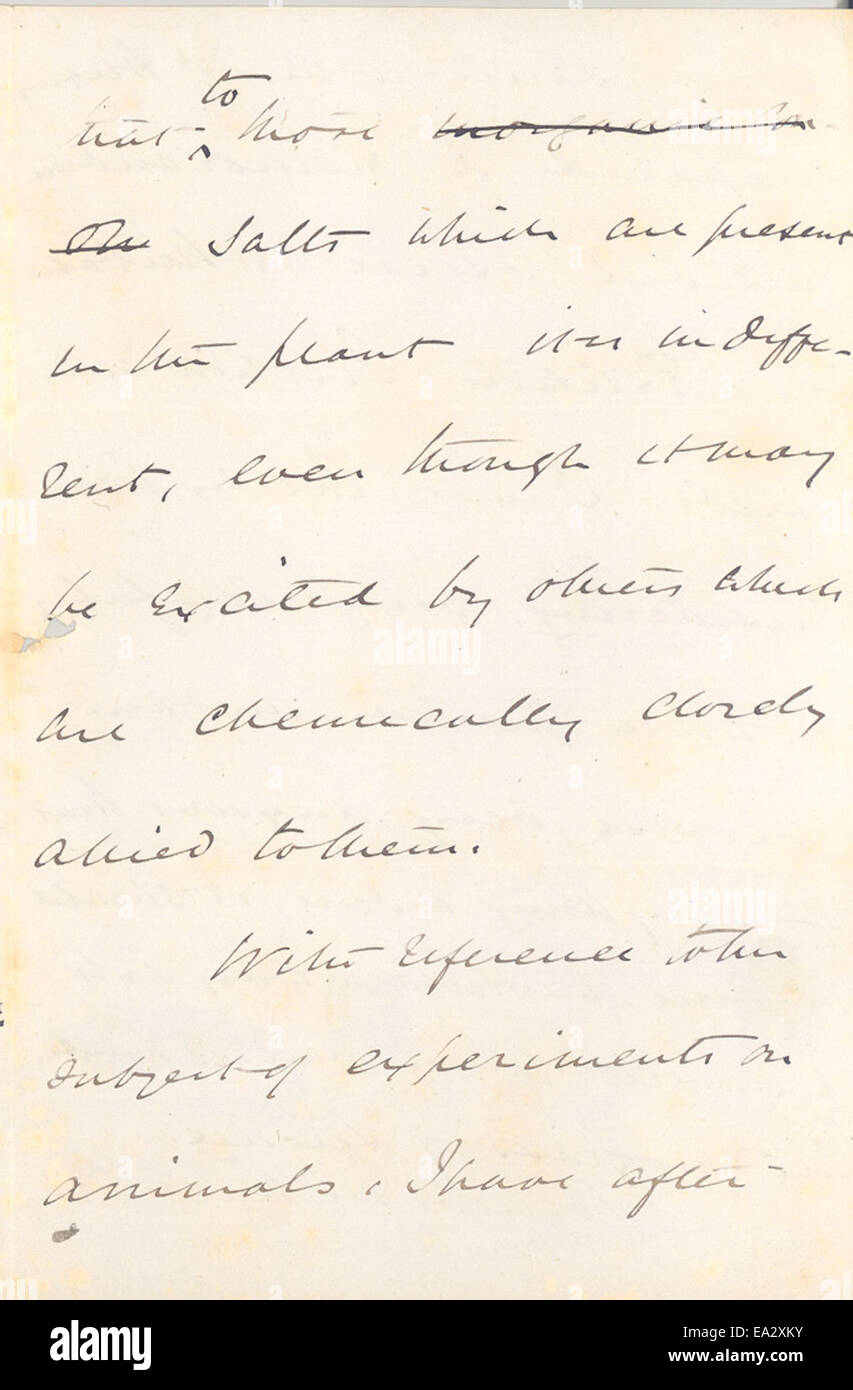 to
that ^ those inorganic
salts which are present
in the plant it is indiffe-
rent, even though it may
be excited by others which
are chemically closely
allied to them.
With reference to the
subject of experiments on
animals, I have after
alamy
EA2XKY
www.alamy.com